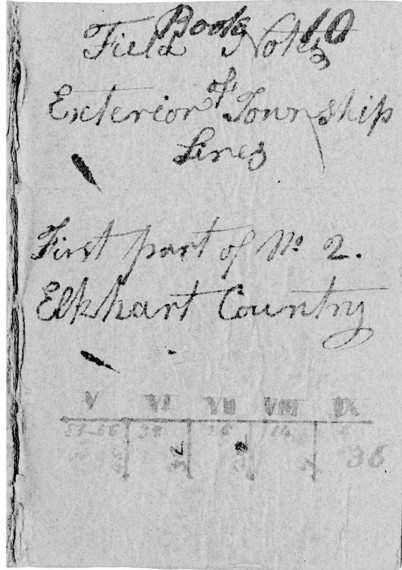 Book 10
Field Notes
of
Exterior Township
Lines
First part of No 2.
Elkhart Country
V VI VII VIII IX
36